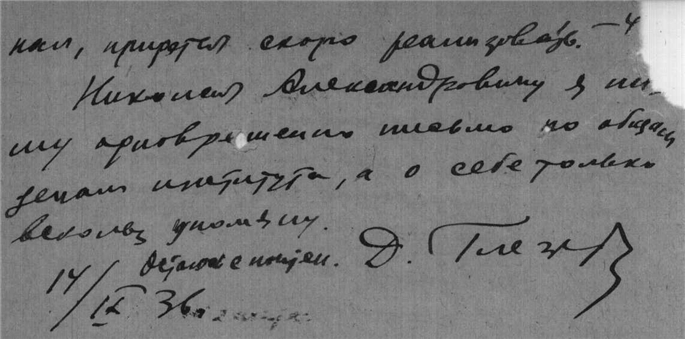 нам, придется скоро реализовать. —
Николаю Александровичу я пи-
шу одновременно письмо по общим
делам института, а о себе только
вскользь упомяну.
Остаюсь с почтен. Д. Глезер
14/IX 36